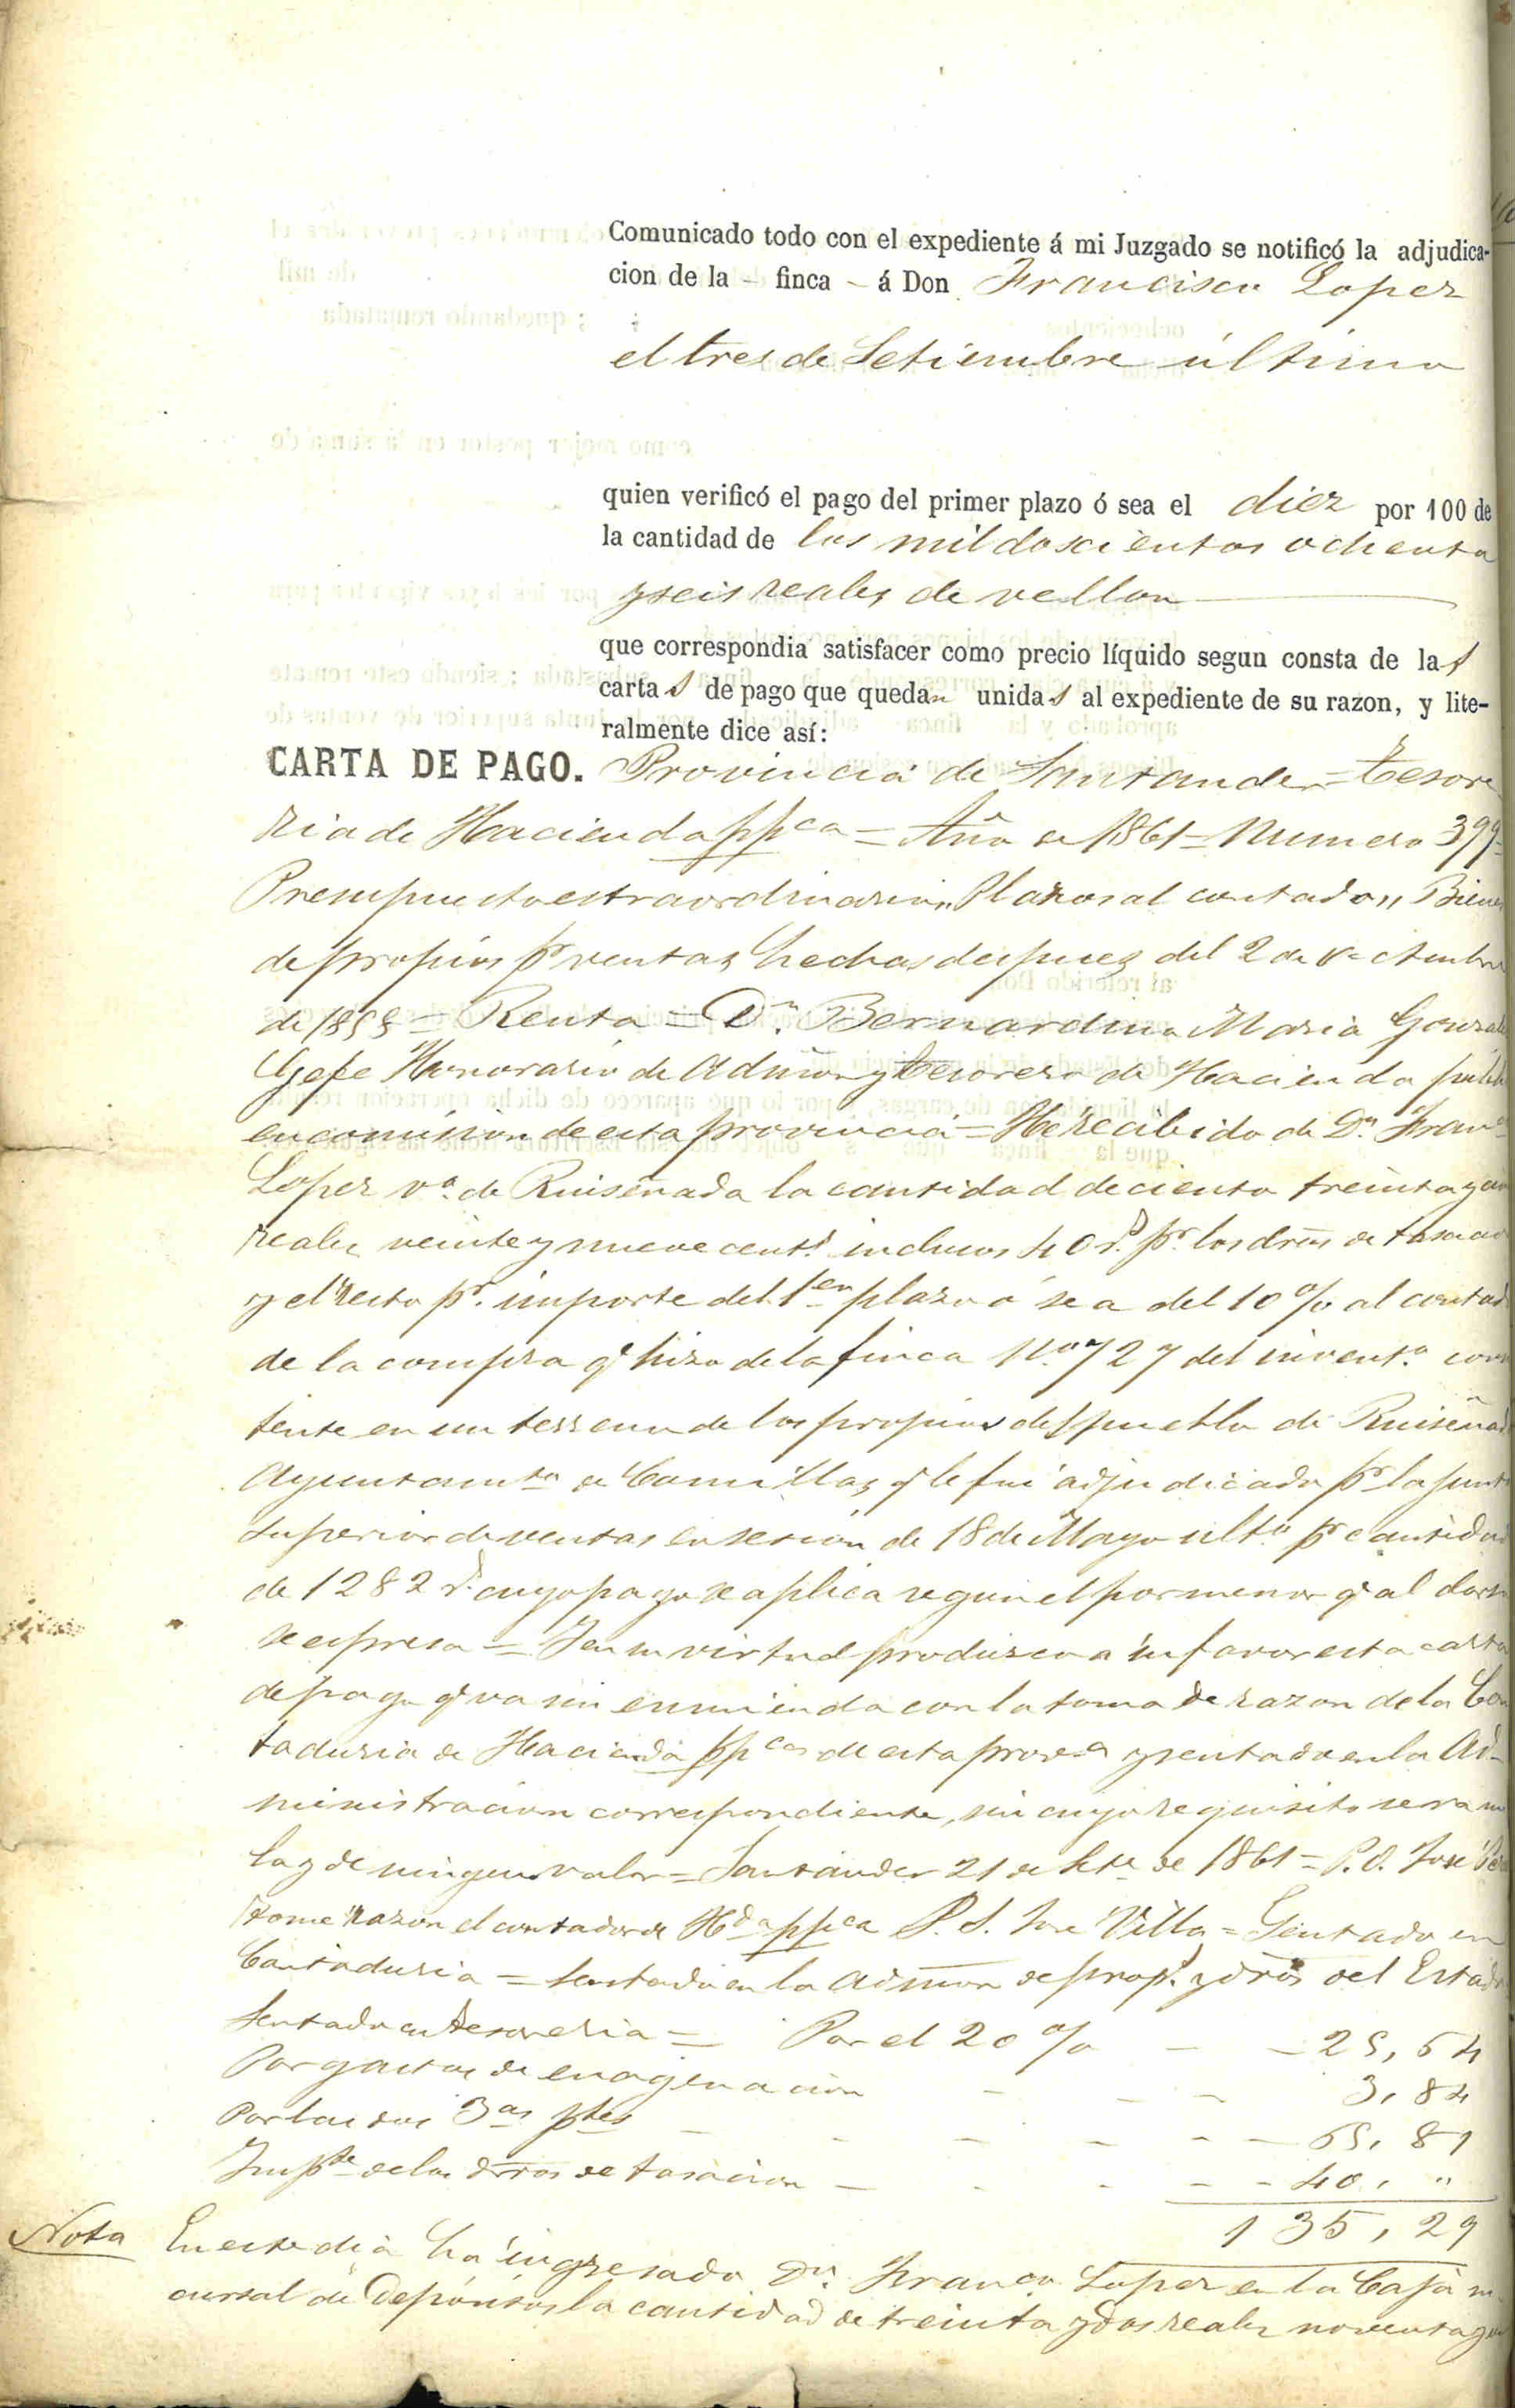 Comunicado todo con el expediente á mi Juzgado se notificó la adjudica-
cion de la - finca - á Don Francisco Lopez
el tres de Setiembre último
quien verificó el pago del primer plazo ó sea el diez por 100 de
la cantidad de los mil doscientos ochenta
y seis reales de vellon
que correspondia satisfacer como precio líquido segun consta de las
cartas de pago que quedan unidas al expediente de su razon, y lite-
ralmente dice así:
CARTA DE PAGO. Provincia de Santander = Tesore
ria de Hacienda ppca = Año de 1861 = Numero 399 =
Presupuesto estraordinario,, Plazos al contado,, Bienes
de propios pr ventas hechas despues del 2 de Octubre
de 1858 = Renta = Dn. Bernardino Maria Gonzal
Gefe Honorario de Admon y tesorero de Hacienda públ
en comision de esta provincia = He recibido de Dn Franco
Lopez vo. de Ruiseñada la cantidad de ciento treinta y cin
reales veinte y nueve cents. inclusos 40 rs. pr. los dros de tasacion
y el resto pr. importe del 1er plazo ó sea del 10 % al contad
de la compra qe hizo de la finca no. 727 del invento. con
tente en un terreno de los propios del pueblo de Ruiseñad
Ayuntamto de Comillas qe le fué adjudicado pr la junt
superior de ventas en sesion de 18 de Mayo ulto. pr cantidad
de 1282 rs. cuyo pago se aplica segun el pormenor qe al dorso
se espresa = Y en su virtud produzco a su favor esta carta
de pago qe va sin enmienda con la toma de razon de la Con
taduria de Hacienda ppca de esta prova y sentado en la Ad-
ministracion correspondiente, sin cuyo requisito sera nu
la y de ningun valor = Santander 21 de Sete de 1861 = P.O. Jose
tome razon el contador de Hda ppca P. S. Jose Villa = Sentado en
Contaduria = Sentado en la Admon de props. y dros del Estado
Sentado en Tesoreria = Por el 20 % - - 25, 64
Por gastos de enagenacion - - - 3, 84
Por las dos 3as ptes - - - - - - 65, 81
Impte de los dros de tasacion - - - - - 40, "
135, 29
Nota En este dia ha ingresado Dn. Franco Lopez en la Caja su
cursal de Depósitos la cantidad de treinta y dos reales noventa y